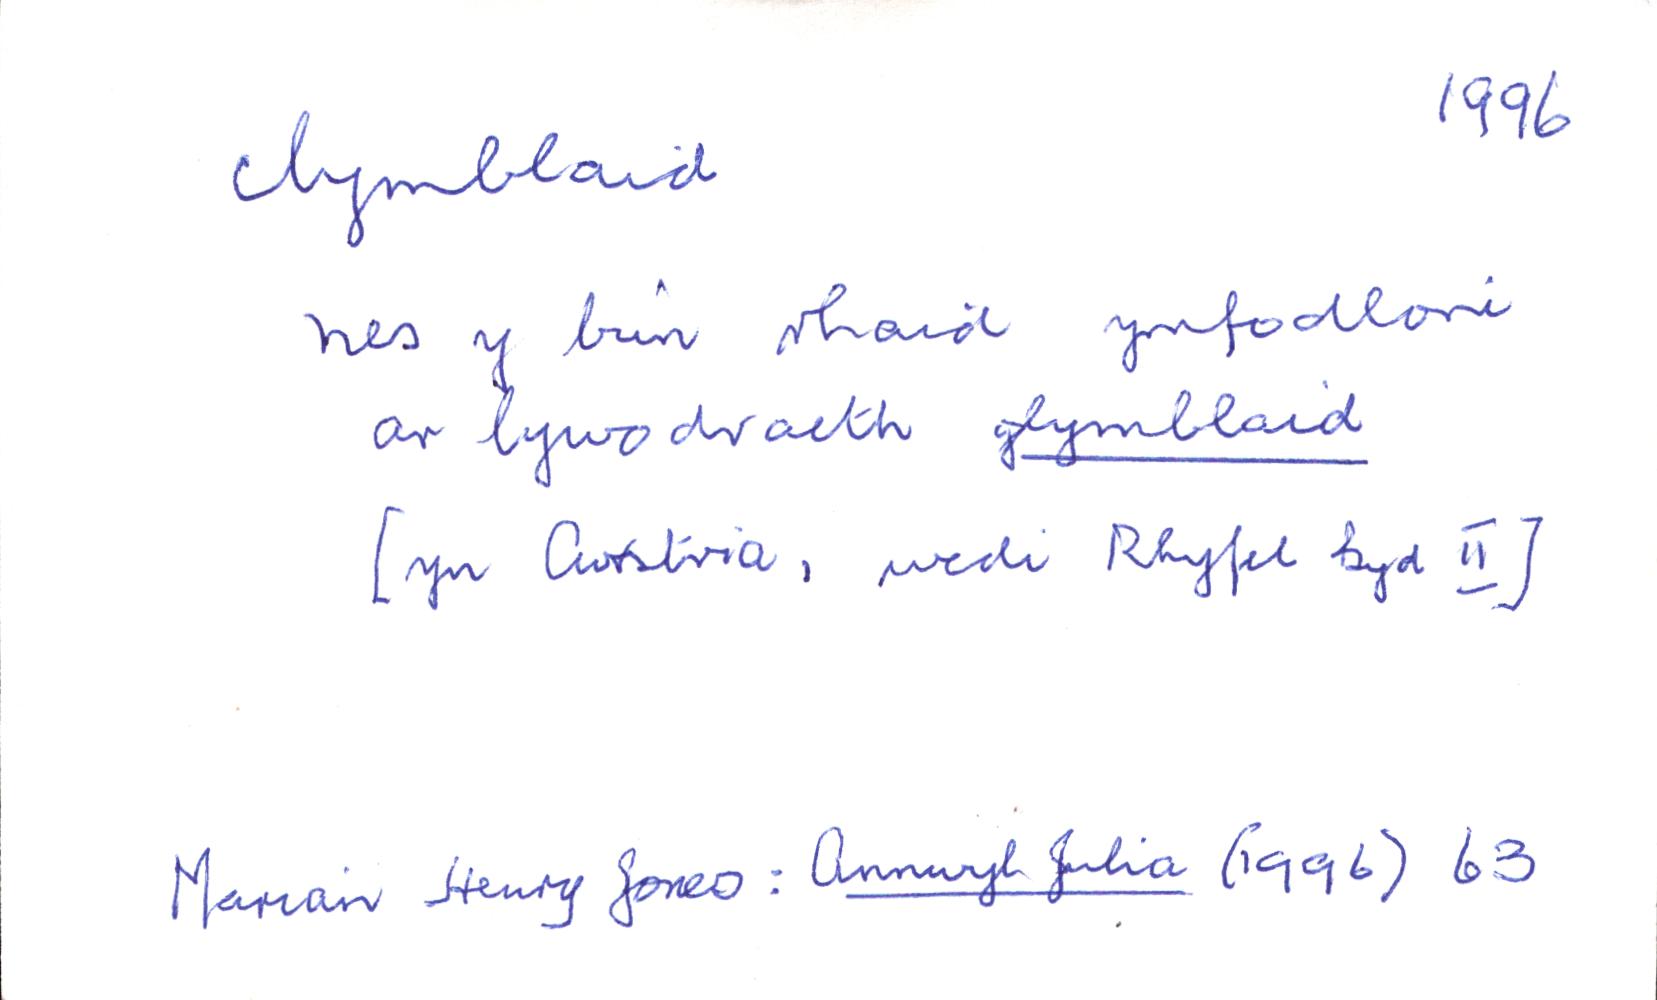 1996
clymblaid
nes y bu'n rhaid ymfodloni
ar lywodraeth glymblaid
[yn Awstria, wedi Rhyfel Byd II]
Marian Henry Jones: Annwyl Julia (1996) 63